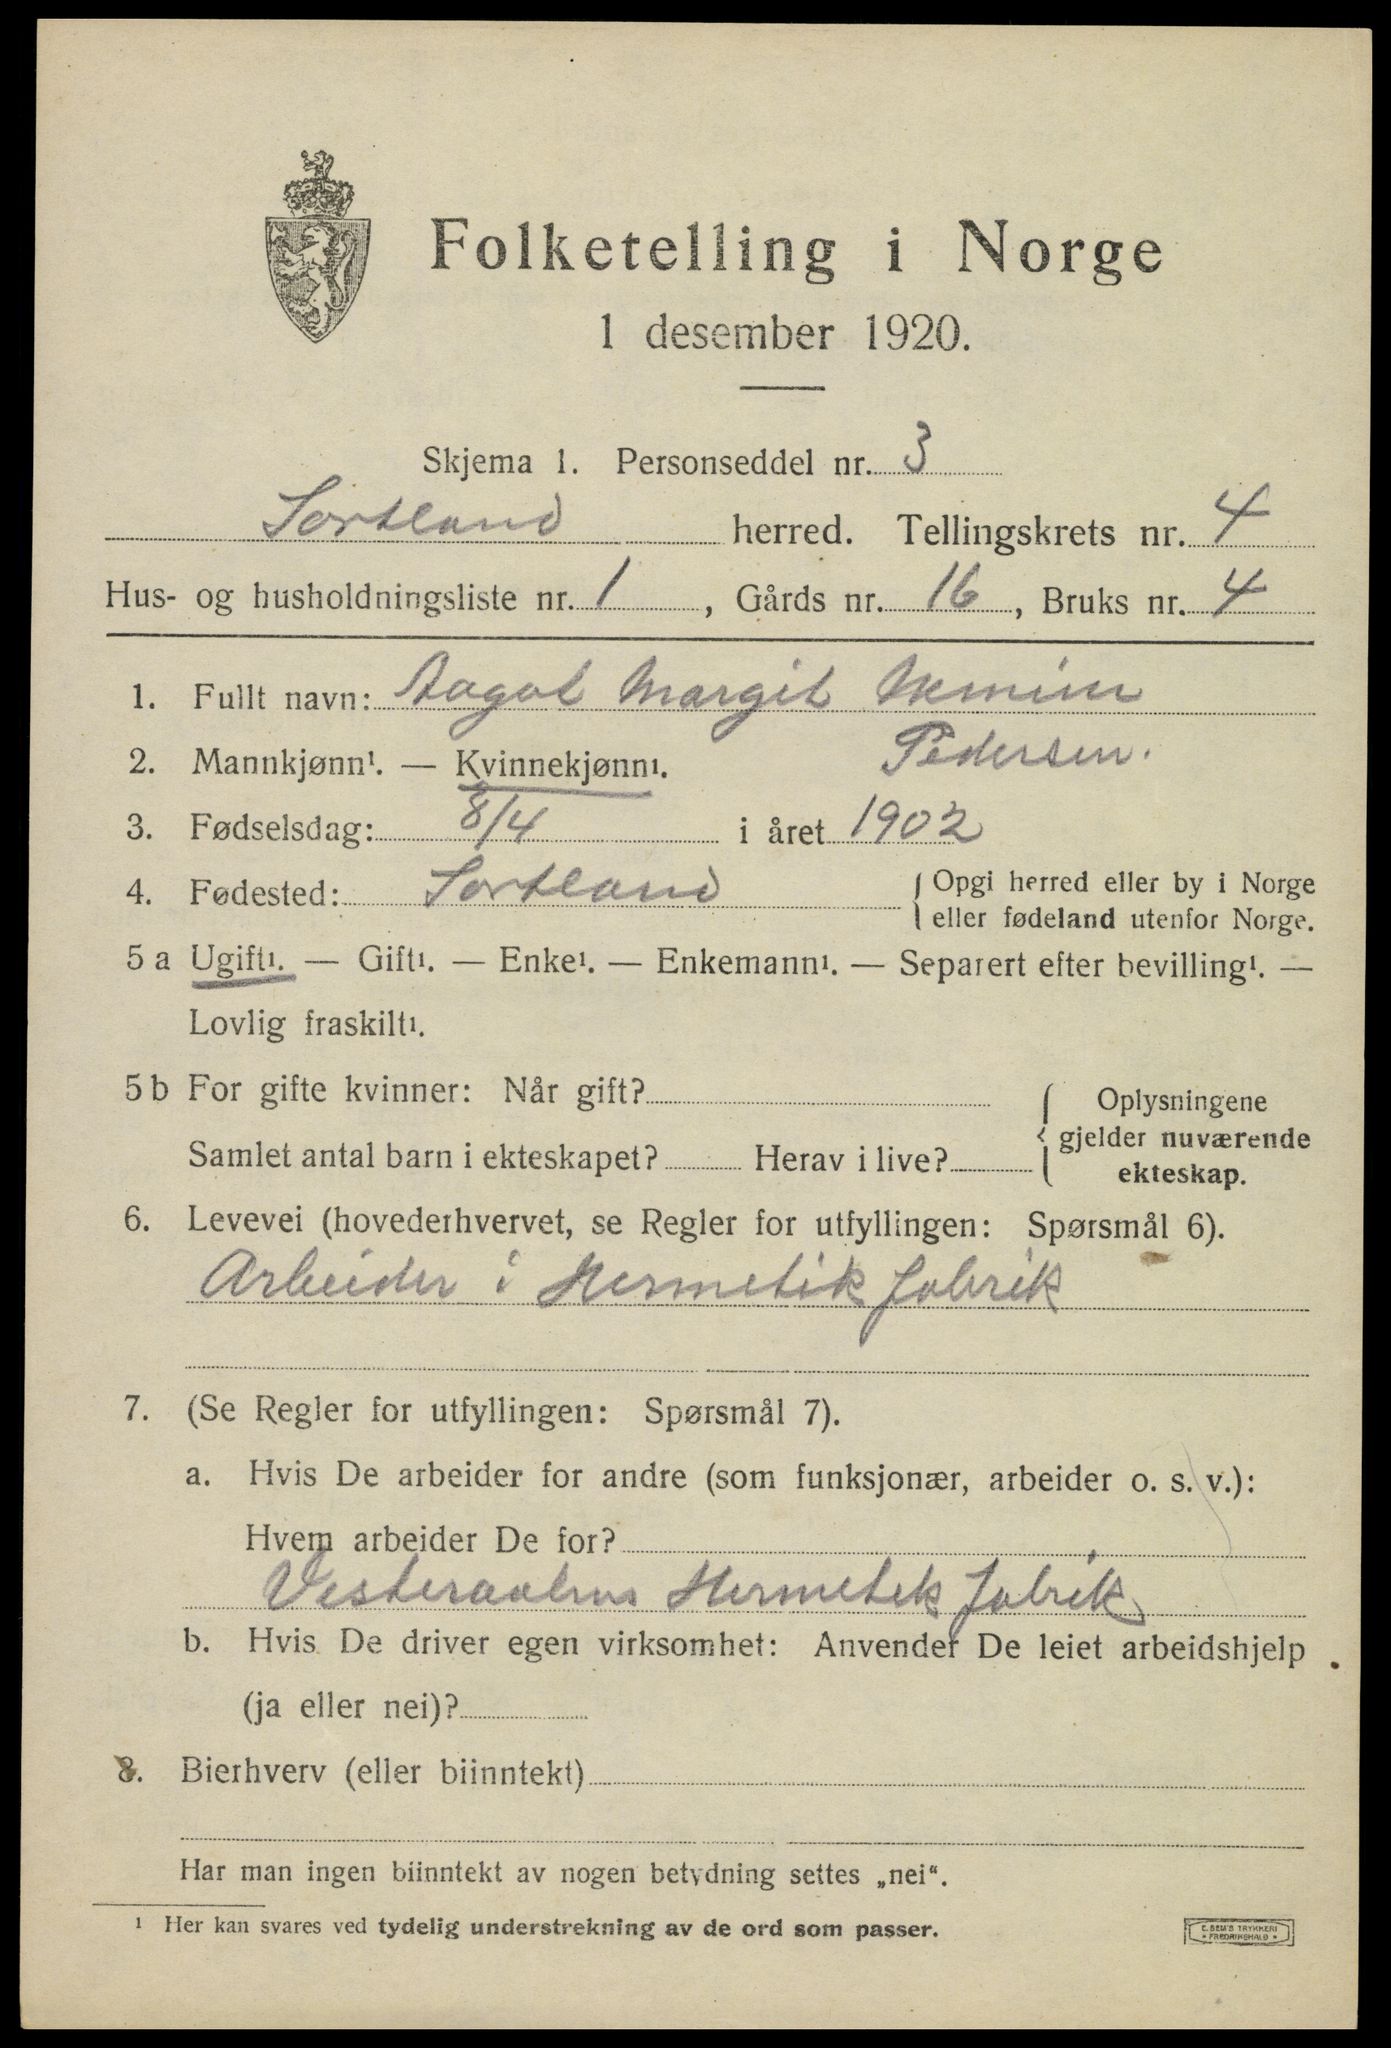 Folketelling i Norge
1 desember 1920.
Skjema 1. Personseddel nr. 3
Sortland herred. Tellingskrets nr. 4
Hus- og husholdningsliste nr. 1, Gårds nr. 16, Bruks nr. 4
1. Fullt navn: Aagot Margit
Pedersen.
2. Mannkjønn¹. — Kvinnekjønn¹.
3. Fødselsdag: 8/4 i året 1902
4. Fødested: Sortland { Opgi herred eller by i Norge
eller fødeland utenfor Norge.
5 a Ugift¹. — Gift¹. — Enke¹. — Enkemann¹. — Separert efter bevilling¹. —
Lovlig fraskilt¹.
5 b For gifte kvinner: Når gift?
Samlet antal barn i ekteskapet? Herav i live?
{ Oplysningene
gjelder nuværende
ekteskap.
6. Levevei (hovederhvervet, se Regler for utfyllingen: Spørsmål 6).
Arbeider i Hermetik fabrik
7. (Se Regler for utfyllingen: Spørsmål 7).
a. Hvis De arbeider for andre (som funksjonær, arbeider o. s. v.):
Hvem arbeider De for?
Vesteraalens Hermetik fabrik
b. Hvis De driver egen virksomhet: Anvender De leiet arbeidshjelp
(ja eller nei)?
8. Bierhverv (eller biinntekt)
Har man ingen biinntekt av nogen betydning settes „nei“.
¹ Her kan svares ved tydelig understrekning av de ord som passer.
E. SEM'S TRYKKERI
• FREDRIKSHALD •